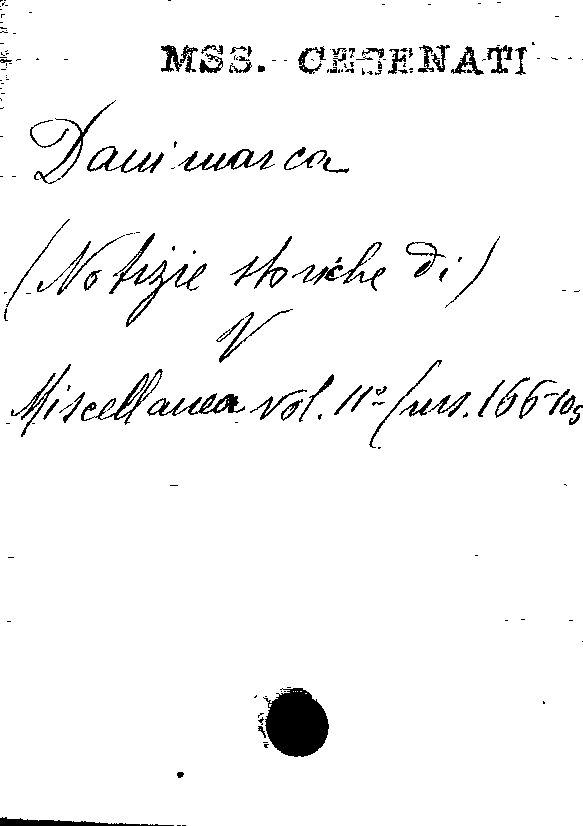 MSS. CESENATI
Danimarca
(Notizie storiche di)
V
Miscellanea vol. 11º (mss. 166-105